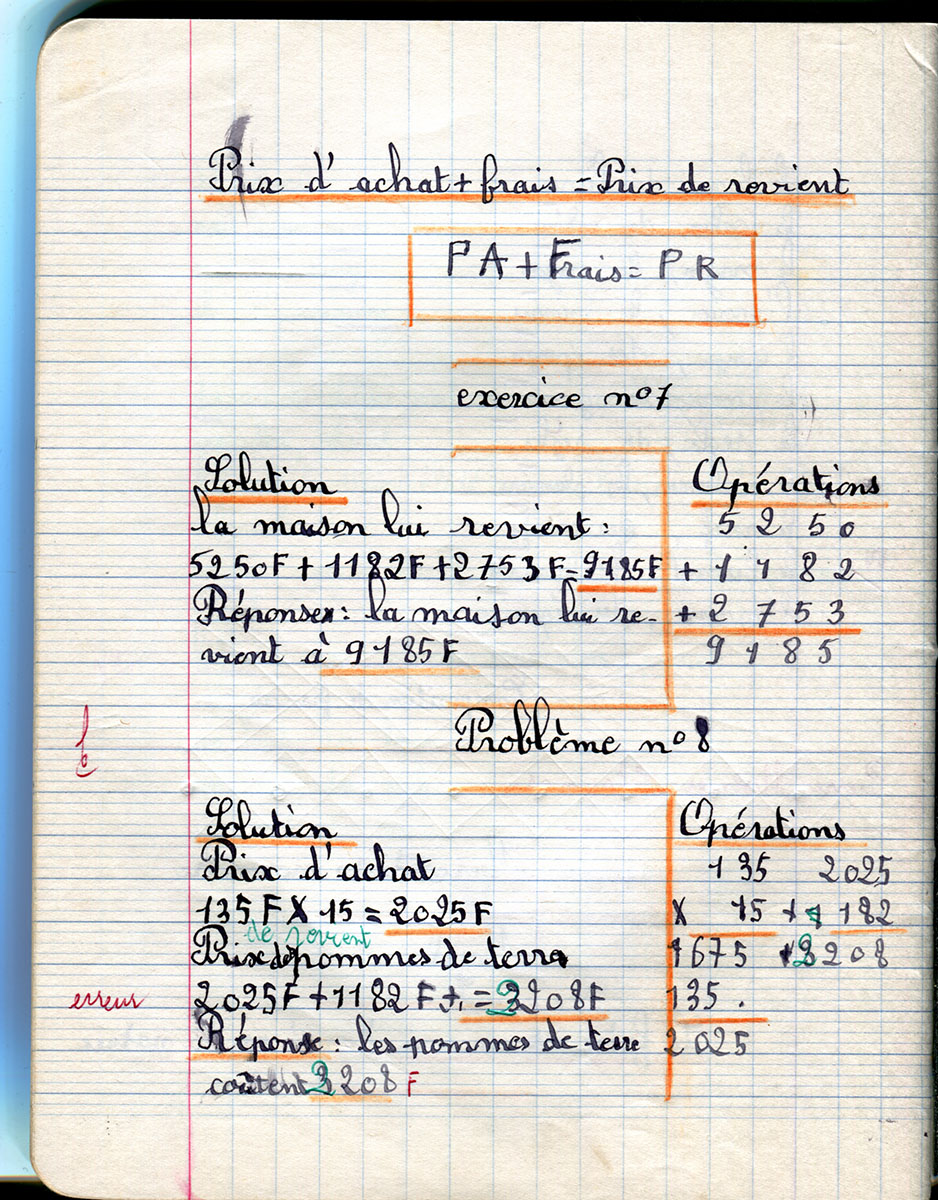 Prix d'achat + frais = Prix de revient
PA + Frais = PR
exercice n°7
Solution
Opérations
la maison lui revient :
5250
5250F + 1182F + 2753F = 9185F
+ 1182
Réponses : la maison lui re-
+ 2753
vient à 9185F
9185
Problème n°8
Solution
Opérations
Prix d'achat
135 2025
135 F X 15 = 2025F
X 15 + 1182
de revient
Prix de pommes de terre
1675 3208
erreur
2025F + 1182F + = 3208F
135.
Réponse : les pommes de terre
2025
coûtent 3208 F